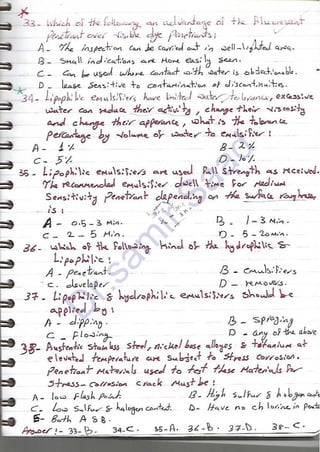 33- Which of the following an advantage of the Fluorescent
Penetrant over visible dye Penetrants:
A- The inspection can be carried out in well-lighted area.
B- Small indications are More easily seen.
C- Can be used where contact with water is objectionable.
D- less Sensitive to contamination of discontinuities.
34- Lipophilic emulsifiers have limited water tolerance, excessive
water can reduce their activity, change their viscosity
and change their apperance, what is the tolerance
Percentage by volume of water to emulsifier:
A- 1% B- 2%
C- 5% D- 10%
35- Lipophilic emulsifiers are used full strength as received.
The recommended emulsifier dwell time for medium
Sensitivity Penetrant depending on the surface roughness
is:
A- 0.5-3 Min. B- 1-3 Min.
C- 2-5 Min. D- 5-20 Min.
36- which of the following kind of the hydrophilic &
Lipophilic:
A- Penetrant B- emulsifiers
C. developer D- removers.
37- Lipophilic & hydrophilic emulsifiers should be
applied by:
A- dipping. B- Spraying
C- Flowing D- any of the above
38- Austentic Stainless Steel, nickel base alloyes & Tetanium at
elevated temperature are Subject to Stress corrosion.
Penetrant Materials used to test these Materials For
Stress-corrosion crack Must be:
A- low Flash Point B- High sulfur & halogen
C- low Sulfur & halogen content. D- Have no chlorine in
E- Both A & B.
Answer:- 33-B. 34-C. 35-A. 36-B. 37-D. 38-C.